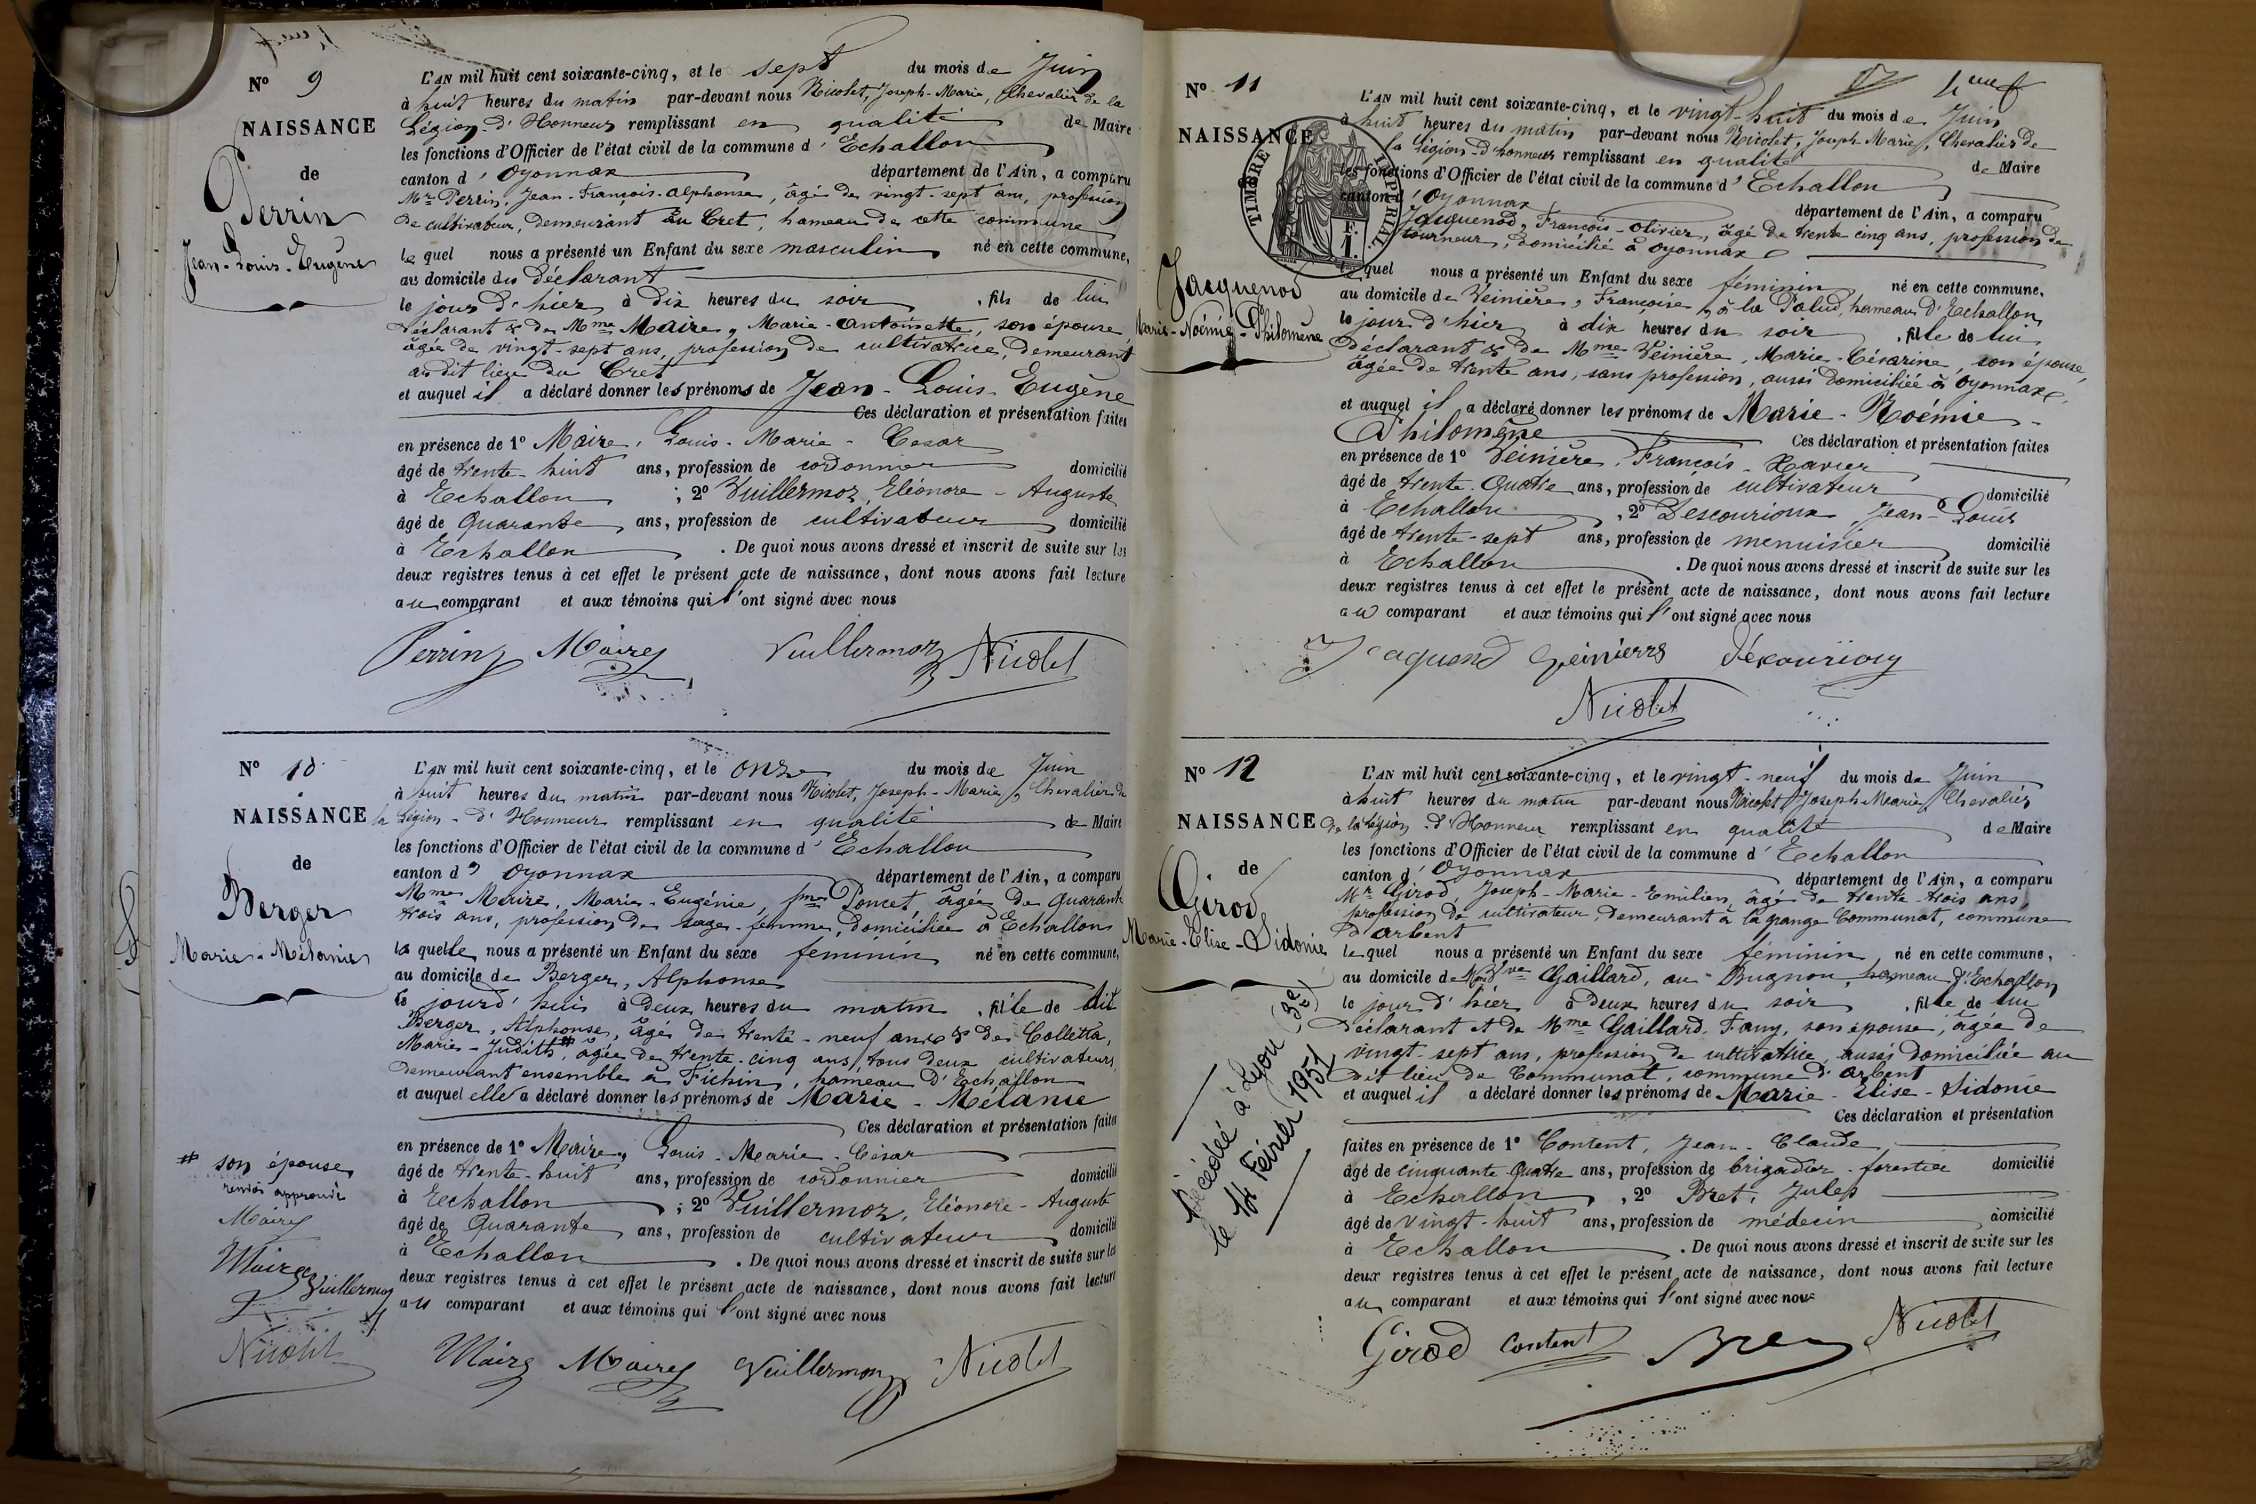 N° 9
NAISSANCE
de
Perrin
Jean-Louis-Eugène
L'AN mil huit cent soixante-cinq, et le sept du mois de Juin
à huit heures du matin par-devant nous Nicolet, Joseph-Marie, Chevalier de la
Légion d'Honneur remplissant en qualité de Maire
les fonctions d'Officier de l'état civil de la commune d'Echallon
canton d'Oyonnax département de l'Ain, a comparu
Mr Perrin, Jean-François-Alphonse, âgé de vingt-sept ans, profession
de cultivateur, demeurant au Cret, hameau de cette commune
lequel nous a présenté un Enfant du sexe masculin né en cette commune,
au domicile du déclarant
le jour d'hier à dix heures du soir, fils de lui
déclarant & de Mme Maire, Marie-Antoinette, son épouse,
âgée de vingt-sept ans, profession de cultivatrice, demeurant
au dit lieu du Cret
et auquel il a déclaré donner les prénoms de Jean-Louis-Eugène
Ces déclaration et présentation faites
en présence de 1° Maire, Louis-Marie-Cesar
âgé de trente-huit ans, profession de cordonnier domicilié
à Echallon ; 2° Vuillermoz, Eléonore-Auguste
âgé de quarante ans, profession de cultivateur domicilié
à Echallon. De quoi nous avons dressé et inscrit de suite sur les
deux registres tenus à cet effet le présent acte de naissance, dont nous avons fait lecture
au comparant et aux témoins qui l'ont signé avec nous
Perrin Maire Vuillermoz Nicolet
N° 10
NAISSANCE
de
Berger
Marie-Mélanie
L'AN mil huit cent soixante-cinq, et le onze du mois de Juin
à huit heures du matin par-devant nous Nicolet, Joseph-Marie, Chevalier de
la Légion-d'Honneur remplissant en qualité de Maire
les fonctions d'Officier de l'état civil de la commune d'Echallon
canton d'Oyonnax département de l'Ain, a comparu
Mme Maire, Marie-Eugénie, fme Poncet, âgée de quarante
trois ans, profession de sage-femme, domiciliée à Echallon
laquelle nous a présenté un Enfant du sexe féminin né en cette commune,
au domicile de Berger, Alphonse
le jourd'hui à deux heures du matin, fille de dit
Berger, Alphonse, âgé de trente-neuf ans & de Colletta,
Marie-Judith #, âgée de trente-cinq ans, tous deux cultivateurs,
demeurant ensemble à Fichin, hameau d'Echallon
et auquel elle a déclaré donner les prénoms de Marie-Mélanie
Ces déclaration et présentation faites
en présence de 1° Maire, Louis-Marie-César
âgé de trente-huit ans, profession de cordonnier domicilié
à Echallon ; 2° Vuillermoz, Eléonore-Auguste
âgé de quarante ans, profession de cultivateur domicilié
à Echallon. De quoi nous avons dressé et inscrit de suite sur les
deux registres tenus à cet effet le présent acte de naissance, dont nous avons fait lecture
au comparant et aux témoins qui l'ont signé avec nous
# son épouse
renvoi approuvé
Maire
Maire
Vuillermoz
Nicolet
Maire Maire Vuillermoz Nicolet
N° 11
NAISSANCE
TIMBRE IMPERIAL.
F.
1.
Jacquenod
Marie-Noémie-Philomène
L'AN mil huit cent soixante-cinq, et le vingt-huit du mois de Juin
à huit heures du matin par-devant nous Nicolet, Joseph-Marie, Chevalier de
la Légion-d'honneur remplissant en qualité de Maire
les fonctions d'Officier de l'état civil de la commune d'Echallon
canton d'Oyonnax département de l'Ain, a comparu
Jacquenod, François-Olivier, âgé de trente cinq ans, profession de
tourneur, domicilié à Oyonnax
lequel nous a présenté un Enfant du sexe féminin né en cette commune,
au domicile de Veinière, Françoise, à la Palud, hameau d'Echallon
le jour d'hier à dix heures du soir, fille de lui
déclarant & de Mme Veinière, Marie-Césarine, son épouse,
âgée de trente ans, sans profession, aussi domiciliée à Oyonnax
et auquel il a déclaré donner les prénoms de Marie-Noémie-
Philomène Ces déclaration et présentation faites
en présence de 1° Veinière, François-Xavier
âgé de trente-quatre ans, profession de cultivateur domicilié
à Echallon, 2° Descourioux, Jean-Louis
âgé de trente-sept ans, profession de menuisier domicilié
à Echallon. De quoi nous avons dressé et inscrit de suite sur les
deux registres tenus à cet effet le présent acte de naissance, dont nous avons fait lecture
au comparant et aux témoins qui l'ont signé avec nous
Nicolet
N° 12
NAISSANCE
de
Girod
Marie-Elise-Sidonie
Décédée à Lyon (3e)
le 14 Février 1951
L'AN mil huit cent soixante-cinq, et le vingt-neuf du mois de Juin
à huit heures du matin par-devant nous Nicolet, Joseph-Marie, Chevalier
de la Légion-d'Honneur remplissant en qualité de Maire
les fonctions d'Officier de l'état civil de la commune d'Echallon
canton d'Oyonnax département de l'Ain, a comparu
Mr Girod Joseph-Marie-Emilien, âgé de trente trois ans,
profession de cultivateur demeurant à la grange Communat, commune
d'Arbent
lequel nous a présenté un Enfant du sexe féminin né en cette commune,
au domicile de Vve Gaillard, au Bugnon, hameau d'Echallon
le jour d'hier à deux heures du soir, fille de lui
déclarant et de Mme Gaillard, Fany, son épouse, âgée de
vingt-sept ans, profession de cultivatrice, aussi domiciliée au
dit lieu de Communat, commune d'Arbent
et auquel il a déclaré donner les prénoms de Marie-Elise-Sidonie
Ces déclaration et présentation
faites en présence de 1° Content, Jean-Claude
âgé de cinquante-quatre ans, profession de brigadier-forestier domicilié
à Echallon, 2° Bret, Jules
âgé de vingt-huit ans, profession de médecin domicilié
à Echallon. De quoi nous avons dressé et inscrit de suite sur les
deux registres tenus à cet effet le présent acte de naissance, dont nous avons fait lecture
au comparant et aux témoins qui l'ont signé avec nous
Girod Content Bret Nicolet